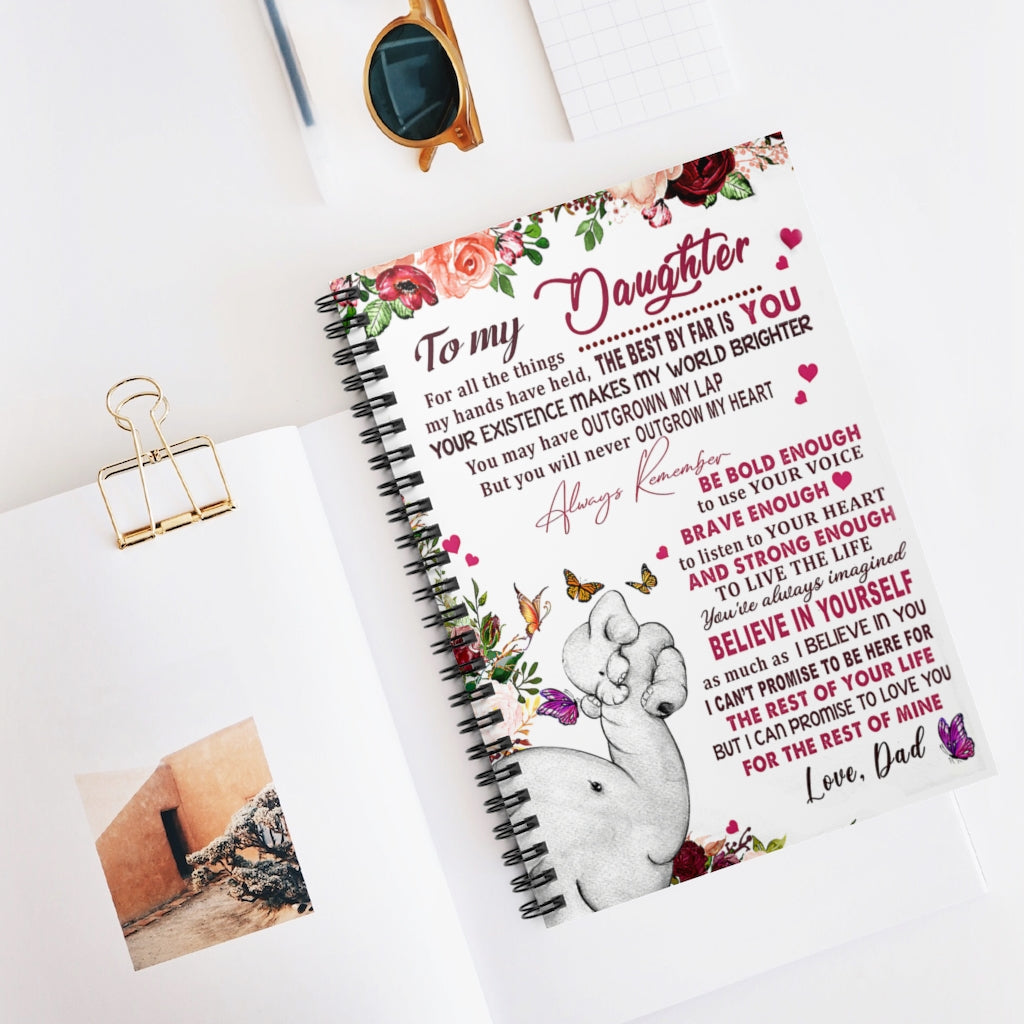 To my Daughter
For all the things
my hands have held, THE BEST BY FAR IS YOU
YOUR EXISTENCE MAKES MY WORLD BRIGHTER
You may have OUTGROWN MY LAP
But you will never OUTGROW MY HEART
Always Remember
BE BOLD ENOUGH
to use YOUR VOICE
BRAVE ENOUGH
to listen to YOUR HEART
AND STRONG ENOUGH
TO LIVE THE LIFE
You've always imagined
BELIEVE IN YOURSELF
as much as I BELIEVE IN YOU
I CAN'T PROMISE TO BE HERE FOR
THE REST OF YOUR LIFE
BUT I CAN PROMISE TO LOVE YOU
FOR THE REST OF MINE
Love, Dad